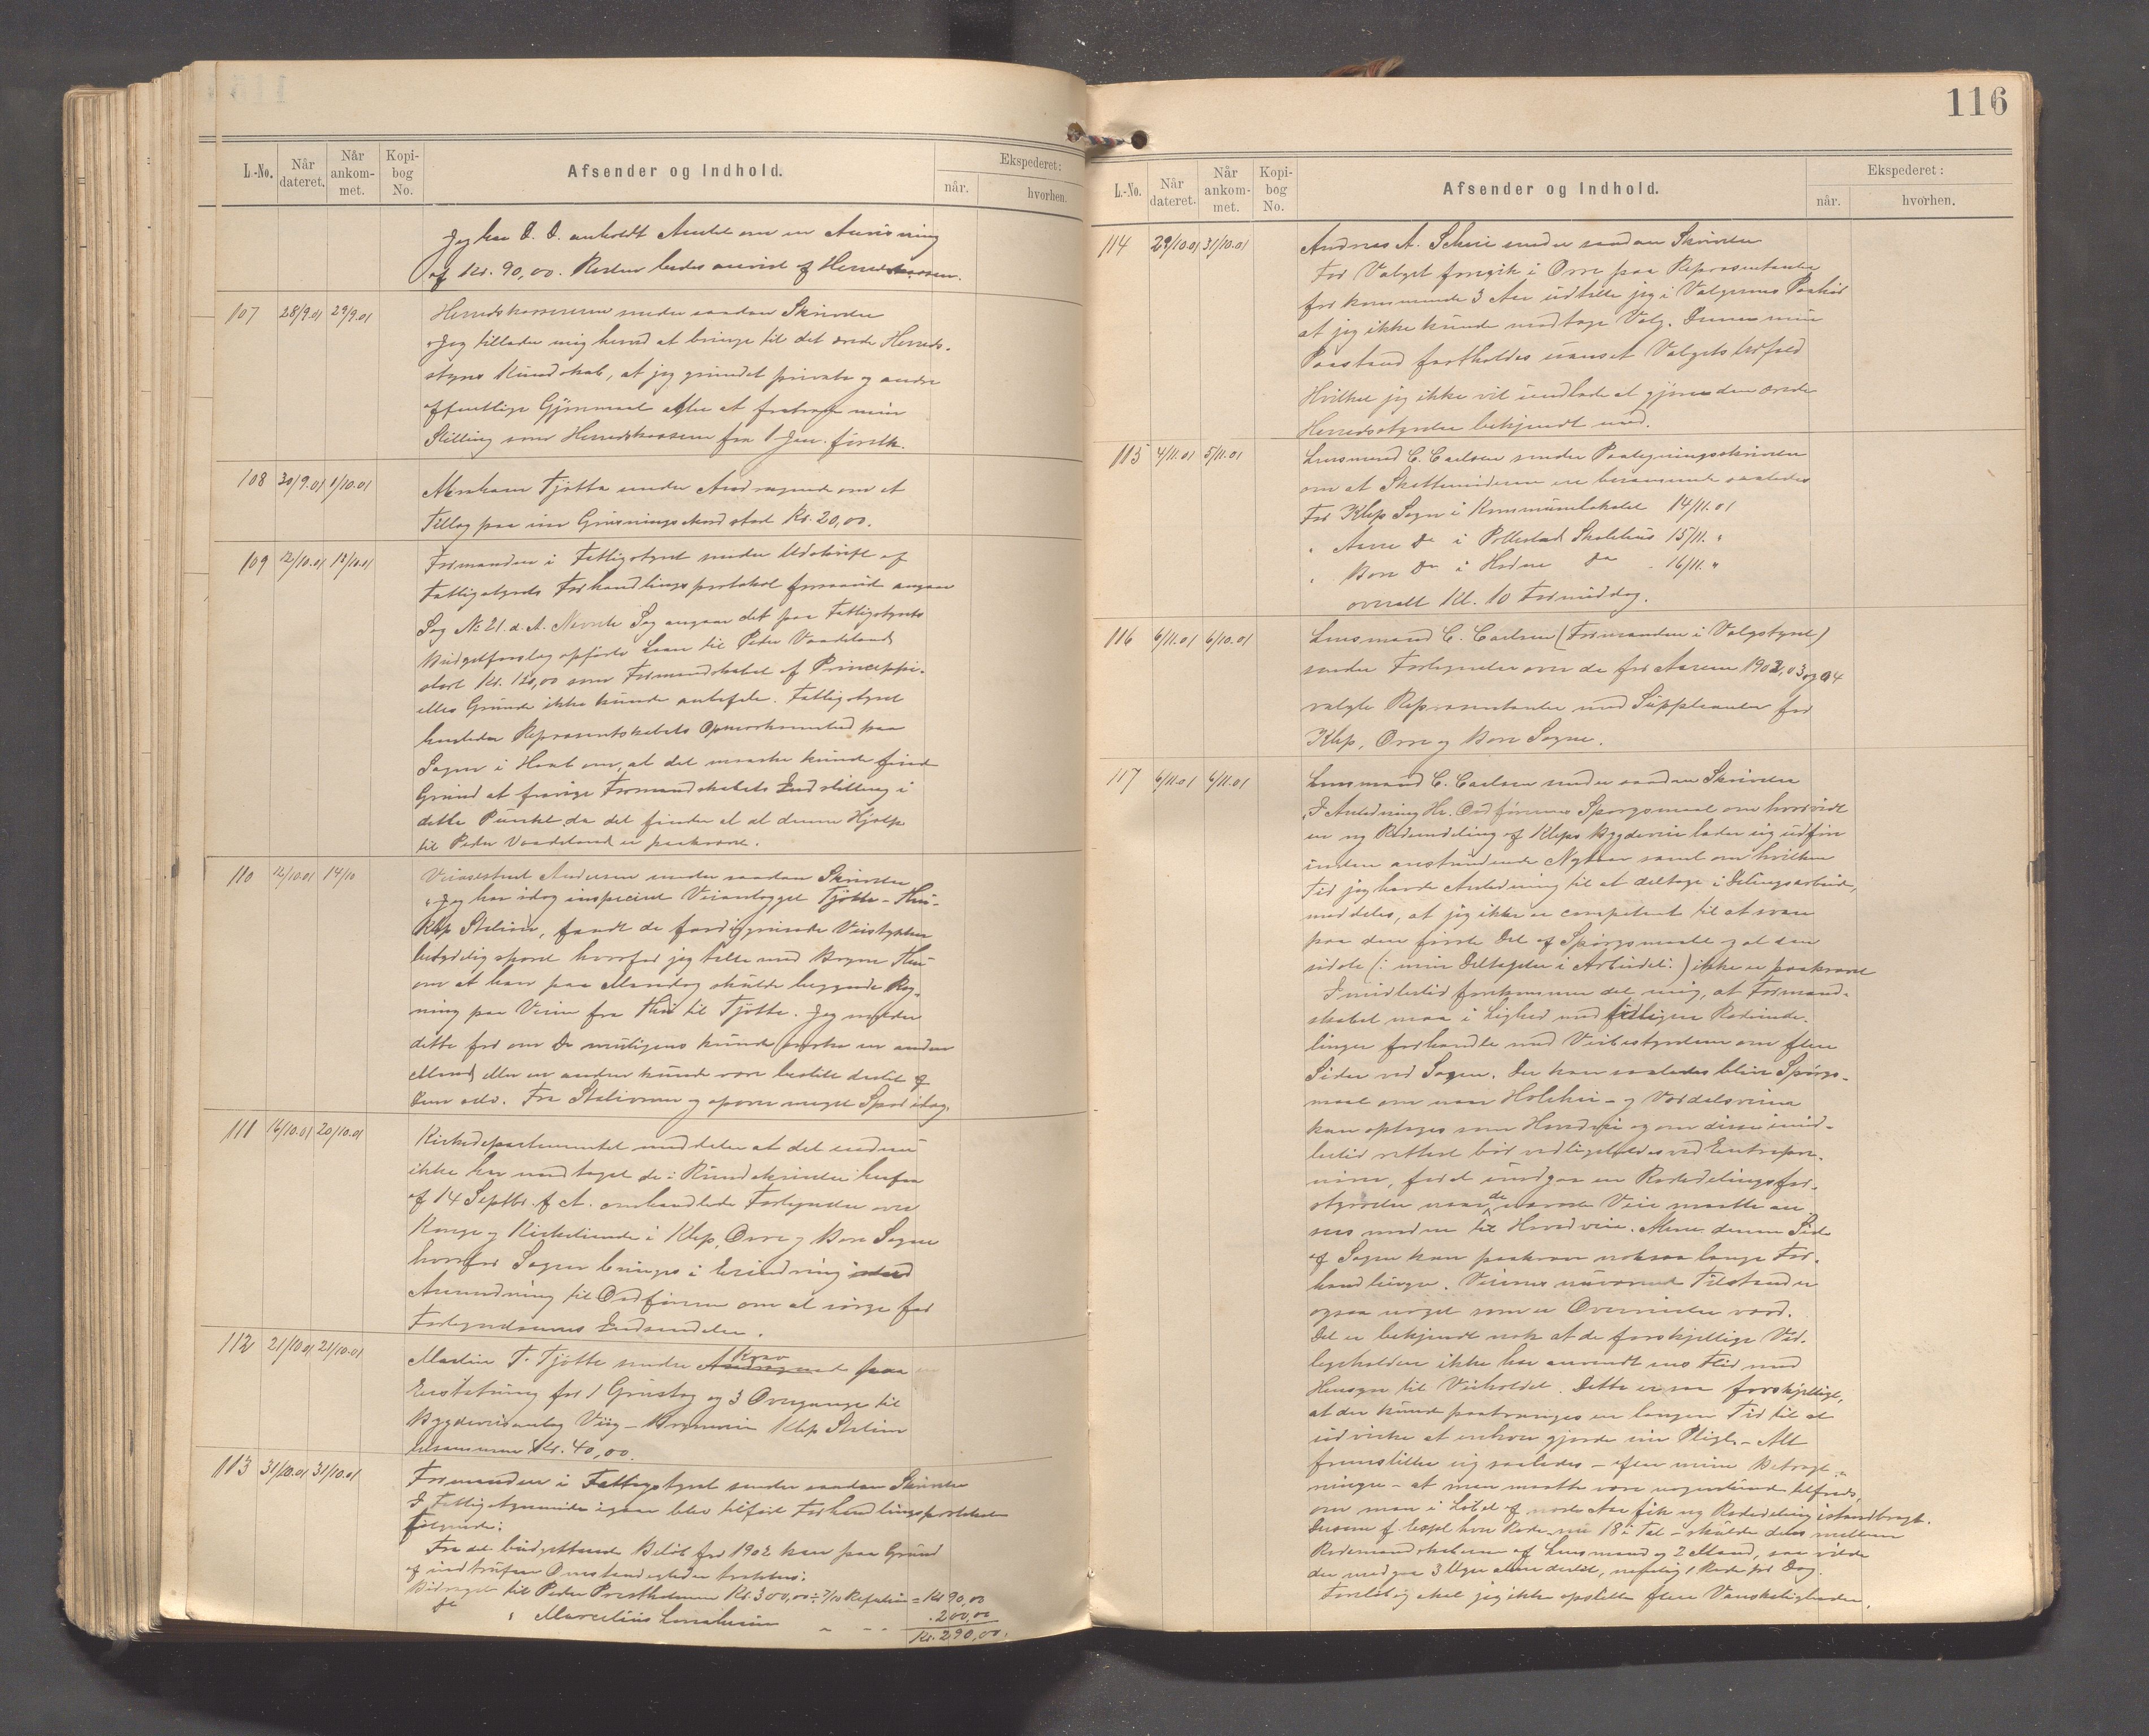 L.-No.
Når dateret.
Når ankommet.
Kopibog No.
Afsender og Indhold.
Ekspederet:
når.
hvorhen.
Jeg har D. D. anholdt Amtet om en Anvisning
af Kr. 90,00. Resten bedes anvist af Herredskassen.
107 28/9.01 29/9.01
Herredskassereren sender saadan Skrivelse
"Jeg tillader mig herved at bringe til det ærede Herreds-
styres Kundskab, at jeg grundet private og andre
offentlige Gjøremaal agter at fratræde min
Stilling som Herredskasserer fra 1 Jan. førstk.
108 30/9.01 1/10.01
Abraham Tjøtta sender Andragende om et
Tillæg paa sin Grusningsakord stort Kr. 20,00.
109 12/10.01 12/10.01
Formanden i Fattigstyret sender Udskrift af
Fattigstyrets Forhandlingsprotokol forsaavidt angaar
Sag No 21. d. A. Nævnte Sag angaar det paa Fattigstyrets
Budgetforslag opførte Laan til Peder Vaadeland
stort Kr. 120,00 som Formandskabet af Princippi-
elle Grunde ikke kunde anbefale. Fattigstyret
henleder Repræsentskabets Opmærksomhed paa
Sagen i Haab om, at det maaske kunde finde
Grund at fravige Formandskabets Indstilling i
dette Punkt da det finder at at denne Hjælp
til Peder Vaadeland er paakrævet.
110 12/10.01 14/10
Veiassistent Andersen sender saadan Skrivelse
"Jeg har idag inspiceret Veianlægget Tjøtta - Hui-
Klep Station, fandt de færdiggrusede Veistykker
betydelig sporet hvorfor jeg talte med Brynie Hui
om at han paa Mandag skulde begynde Rag-
ning paa Veien fra Hui til Tjøtta. Jeg melder
dette for om De muligens kunde ønske en anden
Mand eller en anden kunde være bestilt dertil af
Dem selv. Fra Stationen og opover meget Spor idag.
111 16/10.01 20/10.01
Kirkedepartementet meddeler at det endnu
ikke har modtaget de i Rundskrivelse herfra
af 14 Septbr. f. A. omhandlede Fortegnelse over
Konge og Kirketiende i Klep, Orre og Bore Sogne
hvorfor Sagen bringes i Erindring med
Anmodning til Ordføreren om at sørge for
Fortegnelsernes Indsendelse.
112 21/10.01 21/10.01
Martin T. Tjøtta sender Andragende Krav paa
Erstatning for 1 Grustag og 3 Overgange til
Bygdeveisanlæg Viig - Brynevei Klep Station
tilsammen Kr. 40,00.
113 31/10.01 31/10.01
Formanden i Fattigstyret sender saadan Skrivelse
I Fattigstyremøde igaar blev tilført Forhandlingsprotokolen
følgende:
Fra det budgetterede Beløb for 1902 kan paa Grund
af indtrufne Omstændigheder trækkes:
Bidraget til Peder Prestholmen Kr. 300,00 ÷ 7/10 Refusion = Kr 90,00
do " Marcelius " - - " 200,00
Kr. 290,00.
116
L.-No.
Når dateret.
Når ankommet.
Kopibog No.
Afsender og Indhold.
Ekspederet:
når.
hvorhen.
114 29/10.01 31/10.01
Andreas A. Scheie sender saadan Skrivelse
Før Valget foregik i Orre paa Repræsentanter
for kommende 3 Aar udtalte jeg i Vælgernes Paahør
at jeg ikke kunde modtage Valg. Denne min
Paastand fastholdes uanset Valgets Udfald
Hvilket jeg ikke vil undlade at gjøre den ærede
Herredsstyrelse bekjendt med.
115 4/11.01 5/11.01
Lensmand C. Carlsen sender Paategningsskrivelse
om at Skattemøderne er berammede saaledes
For Klep Sogn i Kommunelokalet 14/11.01
" Aarre Do i Pollestad Skolehus 15/11. "
" Bore Do i Hodne Do - 16/11. "
overalt Kl. 10 Formiddag.
116 6/11.01 6/10.01
Lensmand C. Carlsen (Formanden i Valgstyret)
sender Fortegnelse over de for Aarene 1902, 03 og 04
valgte Repræsentanter med Suppleanter for
Klep, Orre og Bore Sogne.
117 6/11.01 6/11.01
Lensmand C. Carlsen sender saadan Skrivelse
"I Anledning Hr. Ordførerens Spørgsmaal om hvorvidt
en ny Rodeinddeling af Kleps Bygdeveie lader sig udføre
inden anstundende Nytaar samt om hvilken
Tid jeg havde Anledning til at deltage i Delingsarbeide,
meddeles, at jeg ikke er competent til at svare
paa den første Del af Spørgsmaalet og at den
sidste (: min Deltagelse i Arbeidet :) ikke er paakrævet
Imidlertid forekommer det mig, at Formand-
skabet maa i Lighed med tidligere Rodeinde-
linger forhandle med Veibestyrelsen om flere
Sider ved Sagen. Der kan saaledes blive Spørgs-
maal om naar Holehei- og Vardalsveien
kan optages som Hovedvei og om disse imid-
lertid rettest bør vedligeholdes ved Entrepre-
nører, for at undgaa en Rodedelingsfor-
styrrelse naar de nævnte Veie maatte an
sees modne til Hovedveie. Mene denne Side
af Sagen kan paakræve noksaa lange For-
handlinger. Veienes nuværende Tilstand er
ogsaa noget som er Overveielse værd.
Det er bekjendt nok at de forskjellige Ved-
ligeholdere ikke har anvendt ens Flid med
Hensyn til Veiholdet. Dette er saa forskjelligt,
at der kunde paatrænges en længere Tid til at
udvirke at enhver gjorde sin Pligt. - Alt
fremstiller sig saaledes - efter mine Betragt-
ninger - at man maatte være nogenlunde tilfreds,
om man i Løbet af næste Aar fik ny Rodedeling istandbragt.
Dersom f. Expl. hver Rode - nu 18 i Tal - skulde deles mellem
Rodemandskaberne af Lensmand og 2 Mænd, saa vilde
der medgaa 3 Uger alene dertil, nemlig 1 Rode pr Dag.
Foreløbig skal jeg ikke opstille flere Vanskeligheder.